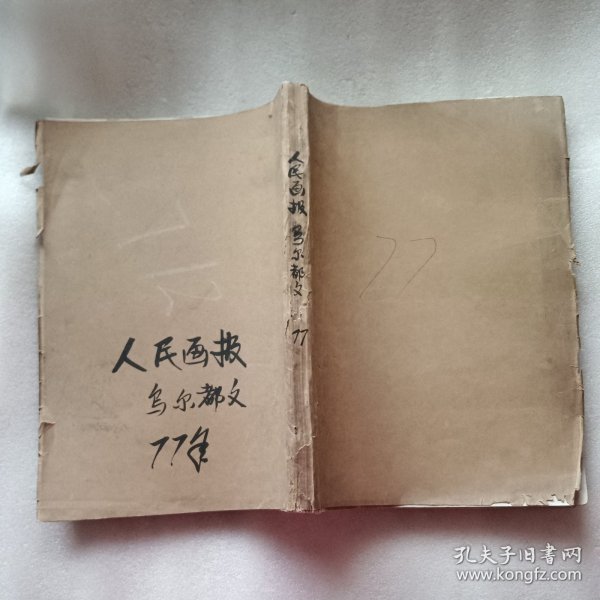 人民画报
乌尔都文
77年
人民画报 乌尔都文 77
77
孔夫子旧书网
www.kongfz.com